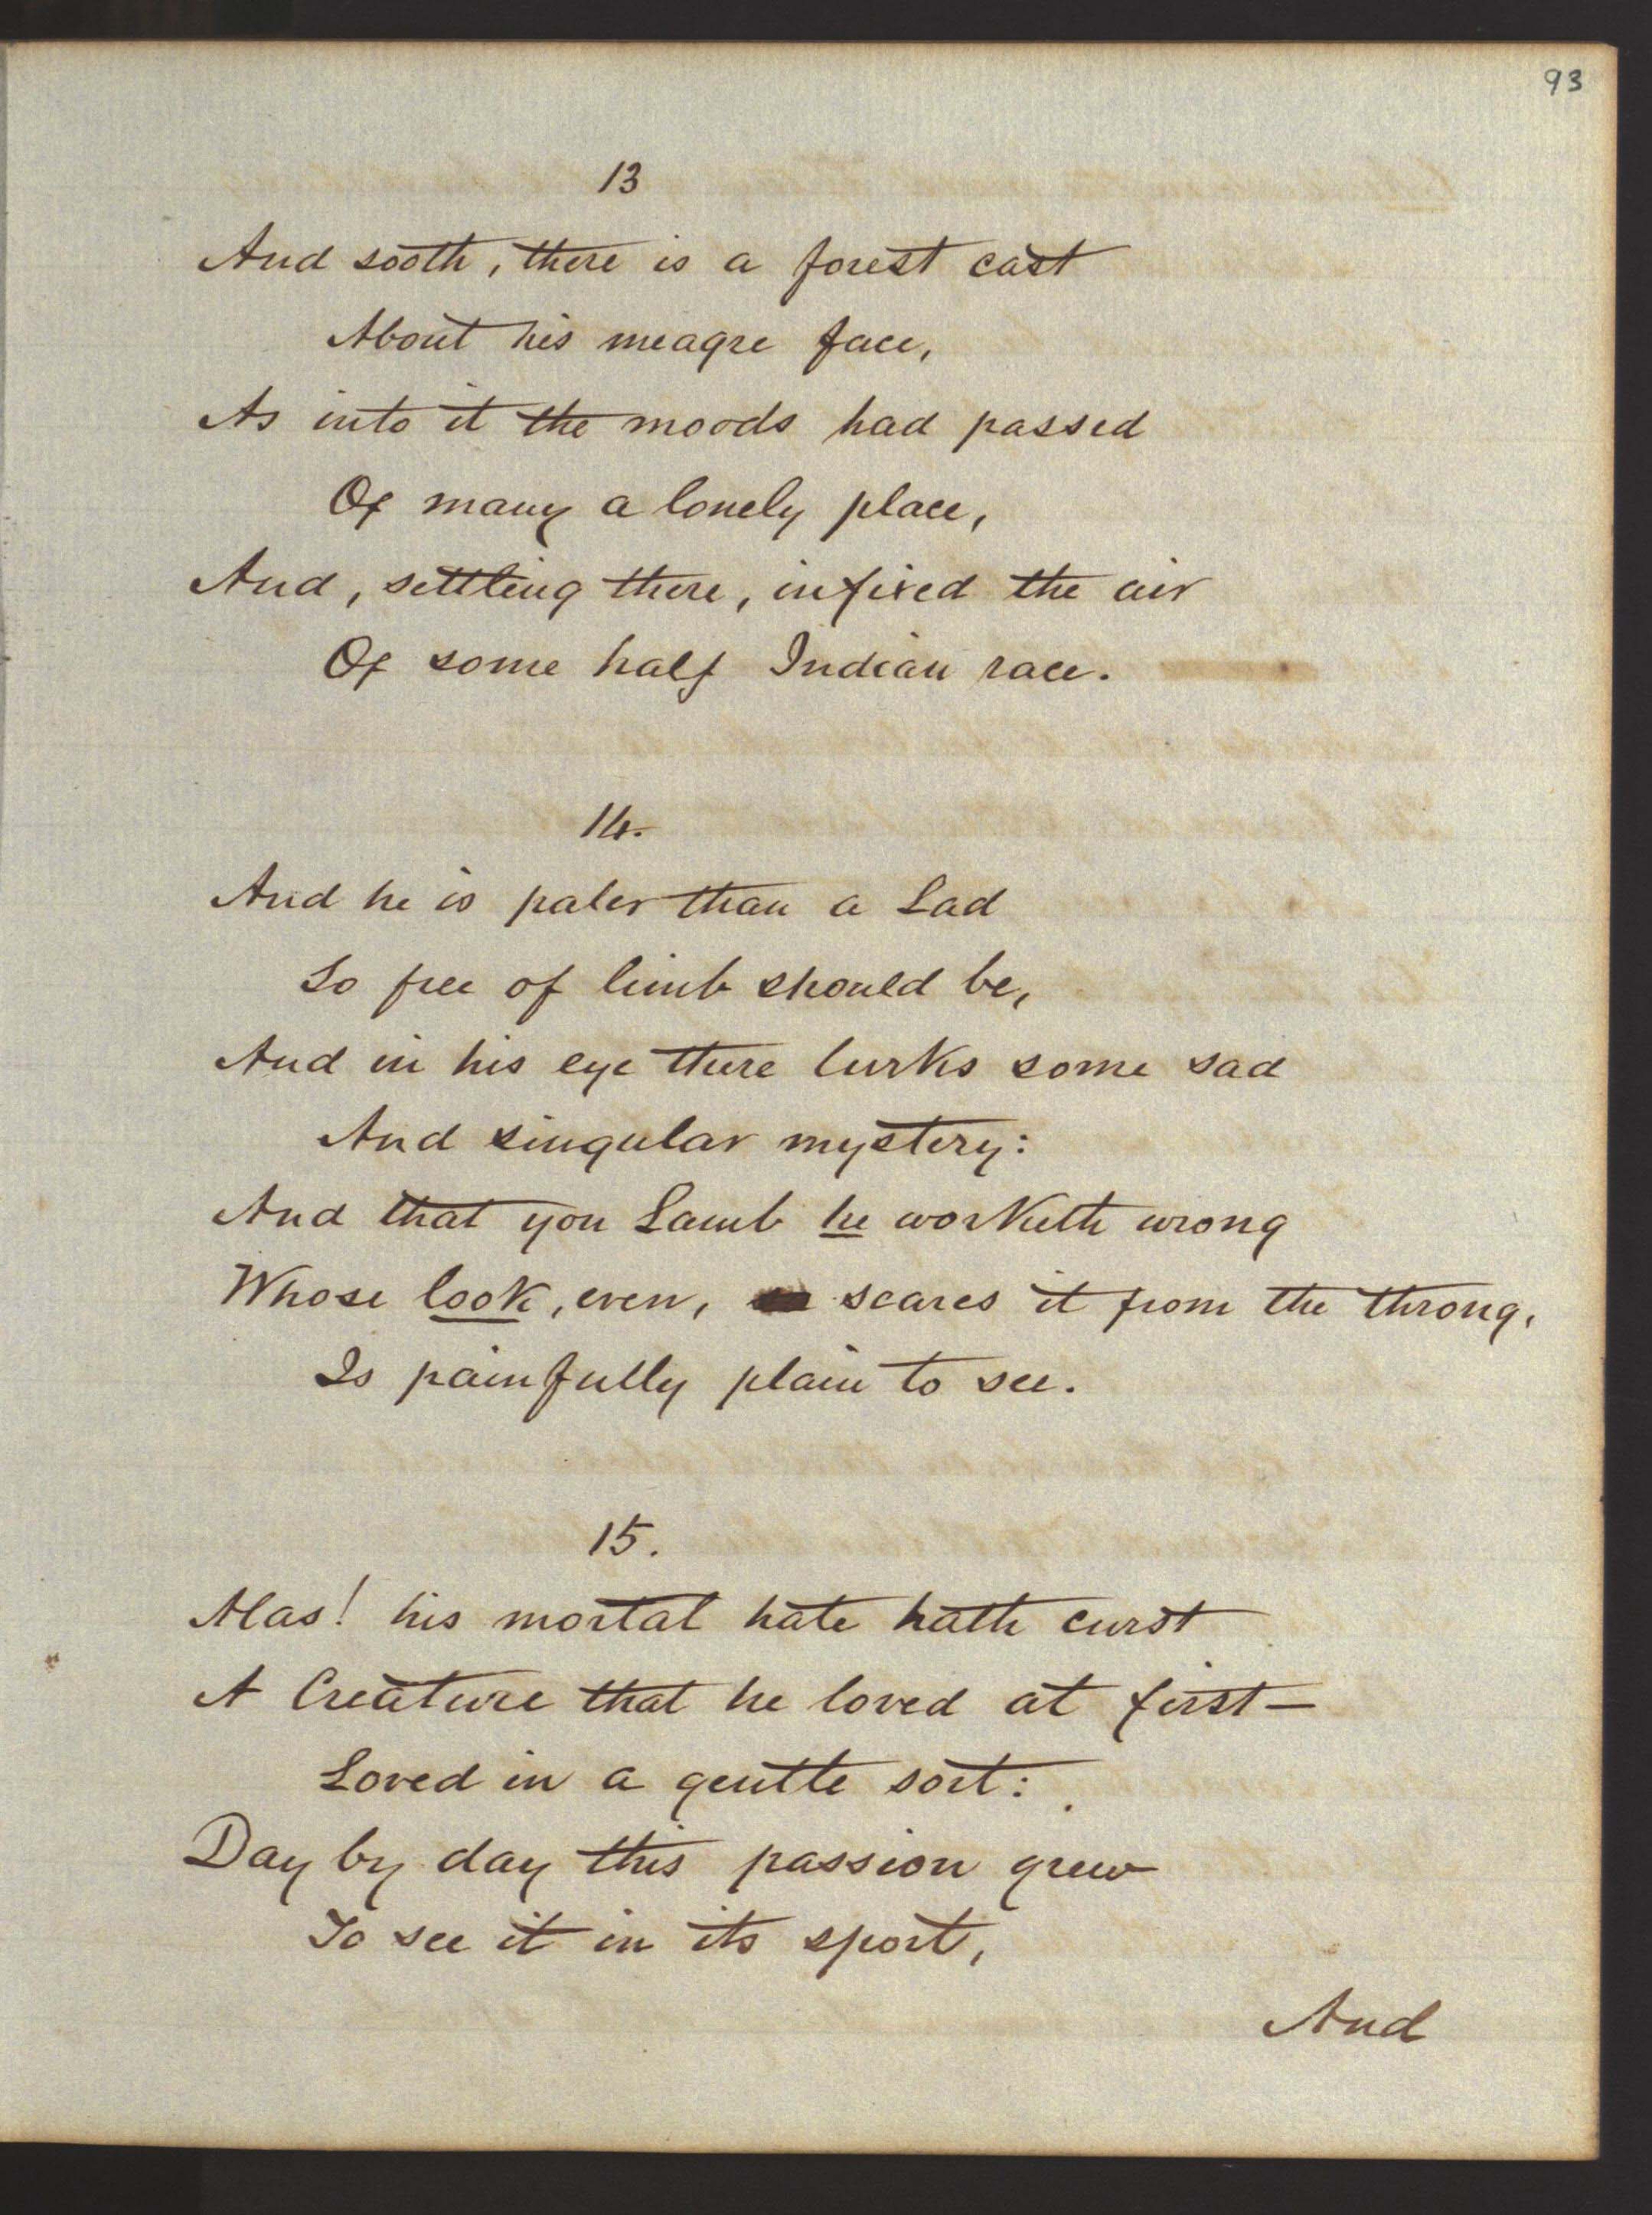 93
13
And sooth, there is a forest cast
About his meagre face,
As into it the moods had passed
Of many a lonely place,
And, settling there, infixed the air
Of some half Indian race.
14.
And he is paler than a Lad
So free of limb should be,
And in his eye there lurks some sad
And singular mystery:
And that you Lamb he worketh wrong
Whose look, even, scares it from the throng,
Is painfully plain to see.
15.
Alas! his mortal hate hath curst
A Creature that he loved at first—
Loved in a gentle sort:
Day by day this passion grew
To see it in its sport,
And